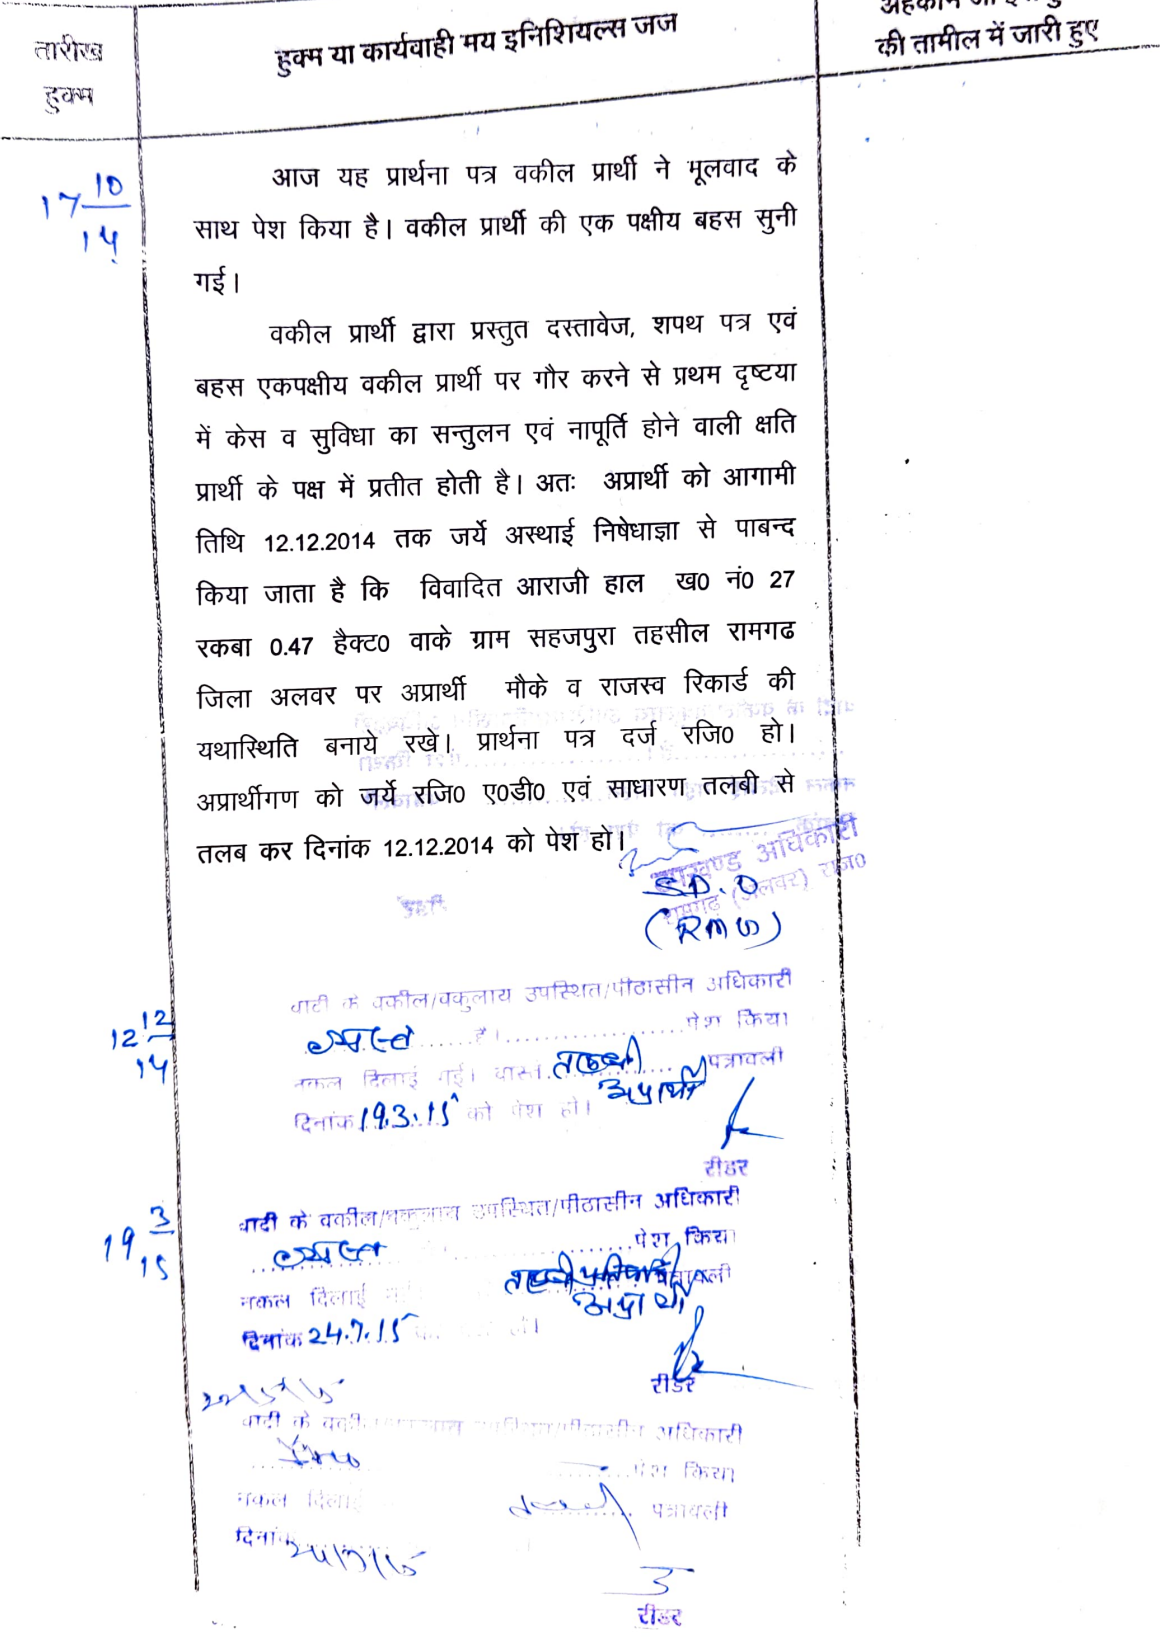 तारीख
हुक्म
हुक्म या कार्यवाही मय इनिशियल्स जज
की तामील में जारी हुए
17 10/14
आज यह प्रार्थना पत्र वकील प्रार्थी ने मूलवाद के
साथ पेश किया है। वकील प्रार्थी की एक पक्षीय बहस सुनी
गई।
वकील प्रार्थी द्वारा प्रस्तुत दस्तावेज, शपथ पत्र एवं
बहस एकपक्षीय वकील प्रार्थी पर गौर करने से प्रथम दृष्टया
में केस व सुविधा का सन्तुलन एवं नापूर्ति होने वाली क्षति
प्रार्थी के पक्ष में प्रतीत होती है। अतः अप्रार्थी को आगामी
तिथि 12.12.2014 तक जर्ये अस्थाई निषेधाज्ञा से पाबन्द
किया जाता है कि विवादित आराजी हाल ख0 नं0 27
रकबा 0.47 हैक्ट0 वाके ग्राम सहजपुरा तहसील रामगढ
जिला अलवर पर अप्रार्थी मौके व राजस्व रिकार्ड की
यथास्थिति बनाये रखे। प्रार्थना पत्र दर्ज रजि0 हो।
अप्रार्थीगण को जर्ये रजि0 ए0डी0 एवं साधारण तलबी से
तलब कर दिनांक 12.12.2014 को पेश हो।
उपखण्ड अधिकारी
रामगढ़ (अलवर) राज0
S.D.O
(RMG)
12 12/14
वादी के वकील/वकुलाय उपस्थित/पीठासीन अधिकारी
व्यस्त है। पेश किया
नकल दिलाई गई। वास्ते तलबी पत्रावली
अप्रार्थी
दिनांक 19.3.15 को पेश हो।
रीडर
19 3/15
वादी के वकील/वकुलाय उपस्थित/पीठासीन अधिकारी
व्यस्त पेश किया
नकल दिलाई तलबी
अप्रार्थी
दिनांक 24.7.15
रीडर
वादी के उपस्थित/पीठासीन अधिकारी
पेश किया
नकल दिलाई पत्रावली
दिनांक
रीडर